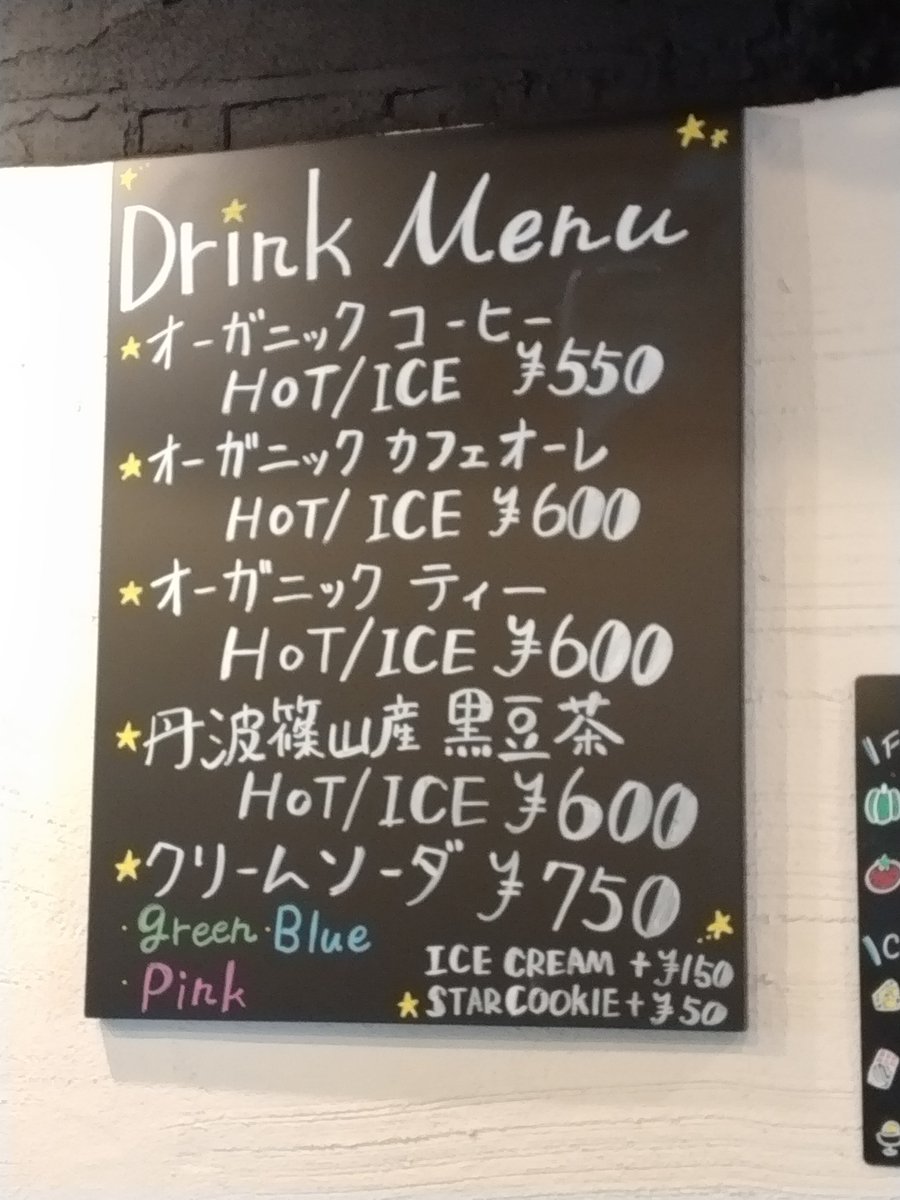 Drink Menu
オーガニック コーヒー
HOT/ICE ¥550
オーガニック カフェオーレ
HOT/ICE ¥600
オーガニック ティー
HOT/ICE ¥600
丹波篠山産 黒豆茶
HOT/ICE ¥600
クリームソーダ ¥750
・green・Blue
・Pink
ICE CREAM +¥150
STAR COOKIE+¥50
\F
\C